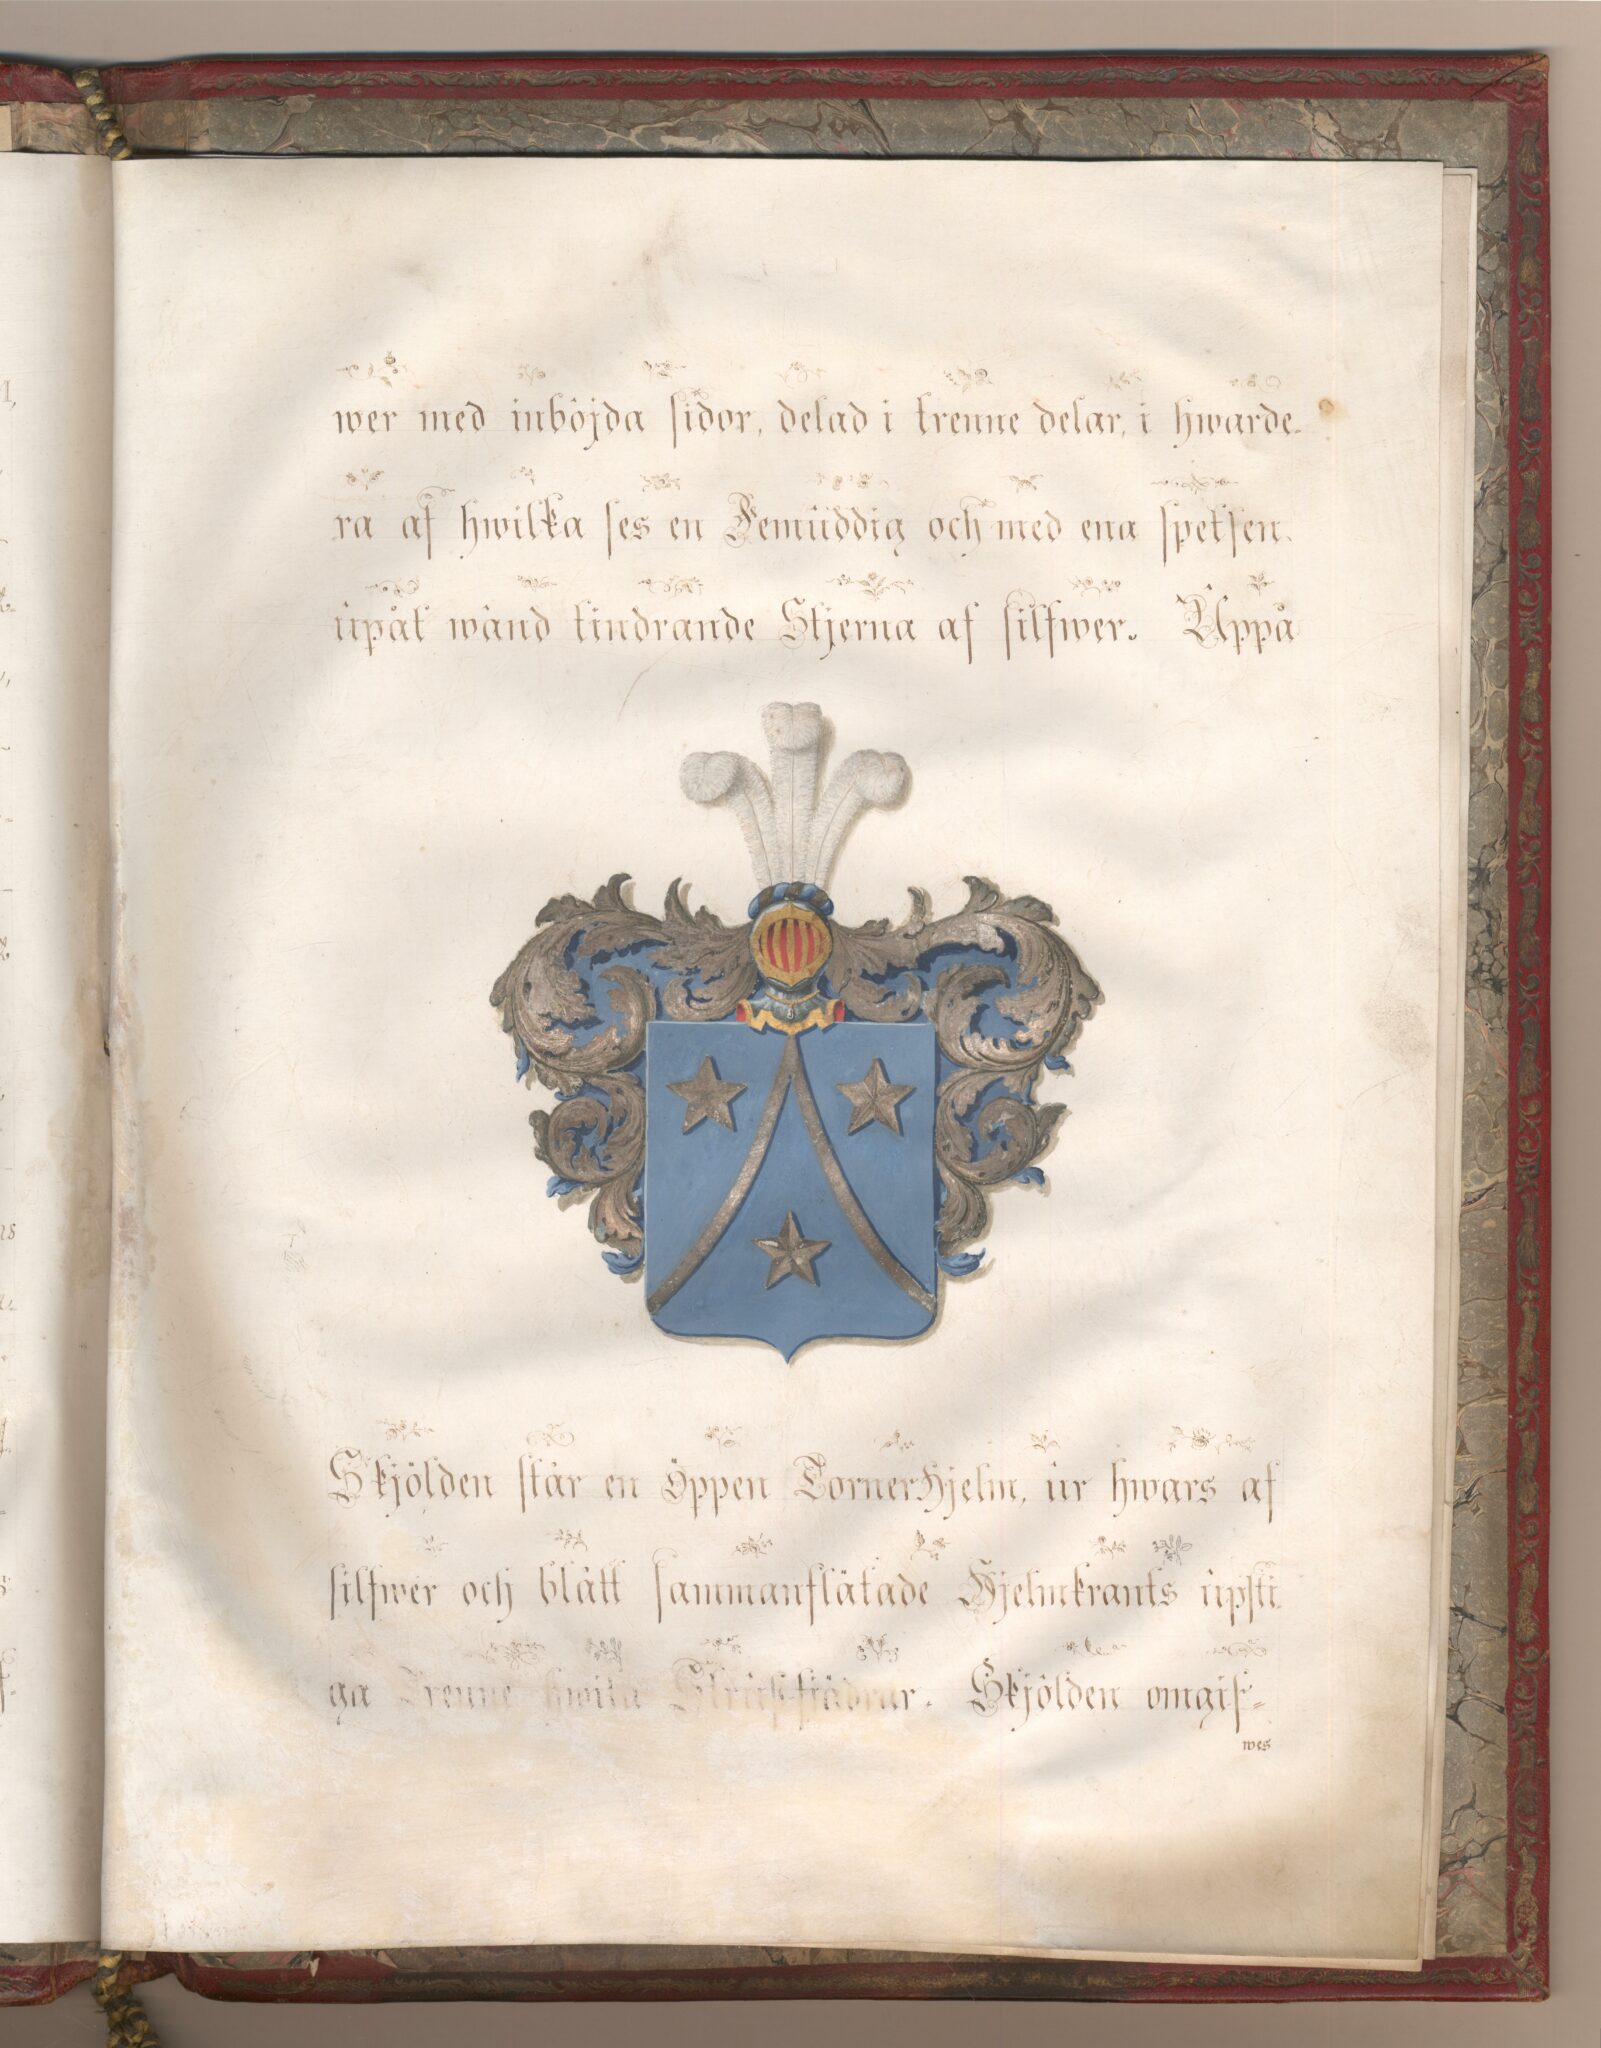 wer med inböjda sidor, delad i trenne delar, i hwarde-
ra af hwilka ses en Femüddig och med ena spetsen
üpåt wänd tindrande Stjerna af silfwer. Üppå
Skjölden står en öppen TornerHjelm, ür hwars af
silfwer och blått sammanflätade Hjelmkrants üpsti-
ga Trenne hwita Strütsfjädrar. Skjölden omgif-
wes